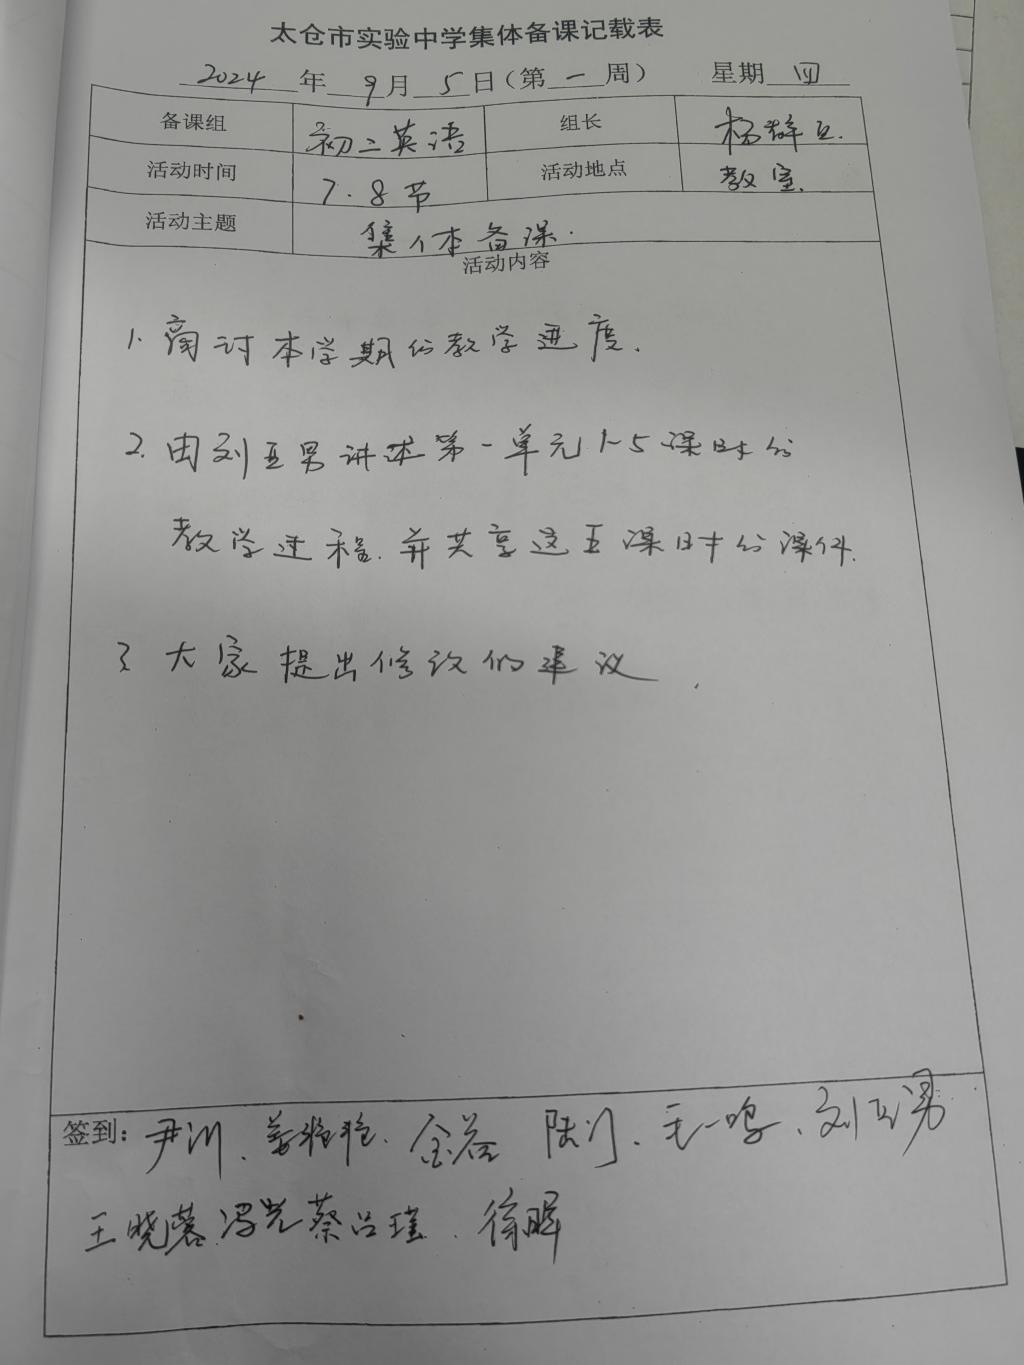 太仓市实验中学集体备课记载表
2024 年 9 月 5 日（第 一 周） 星期 四
备课组 初二英语 组长 杨
活动时间 7.8节 活动地点 教室.
活动主题 集体备课.
活动内容
1. 商讨本学期的教学进度.
2. 由刘亚男讲述第一单元1-5课时的
教学过程.并共享这五课时的课件.
3. 大家提出修改的建议.
签到: 尹川、 金 陆 、毛一鸣、刘亚男
王晓蓉 冯 蔡吕瑾. 徐晖